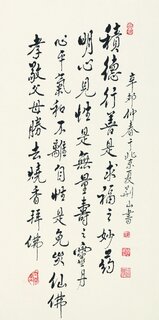 積德行善是求福之妙药
明心見性是無量壽之靈丹
心平氣和不離自性是免災仙佛
孝敬父母勝去燒香拜佛
辛卯仲春于北京夏荆山書